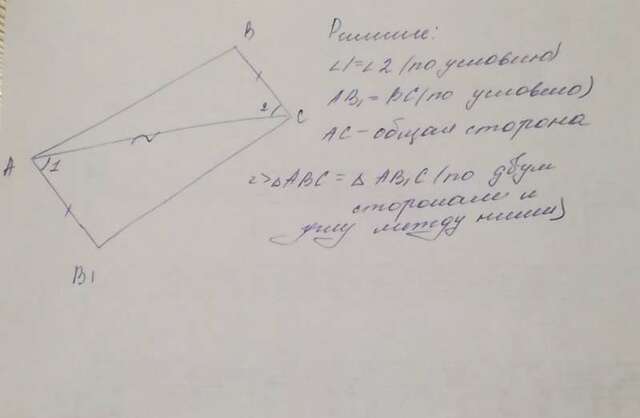 B
A
1
2
C
B1
Решение:
∠1=∠2 (по условию)
AB₁=BC (по условию)
AC – общая сторона
=> △ABC = △AB₁C (по двум
сторонам и
углу между ними)